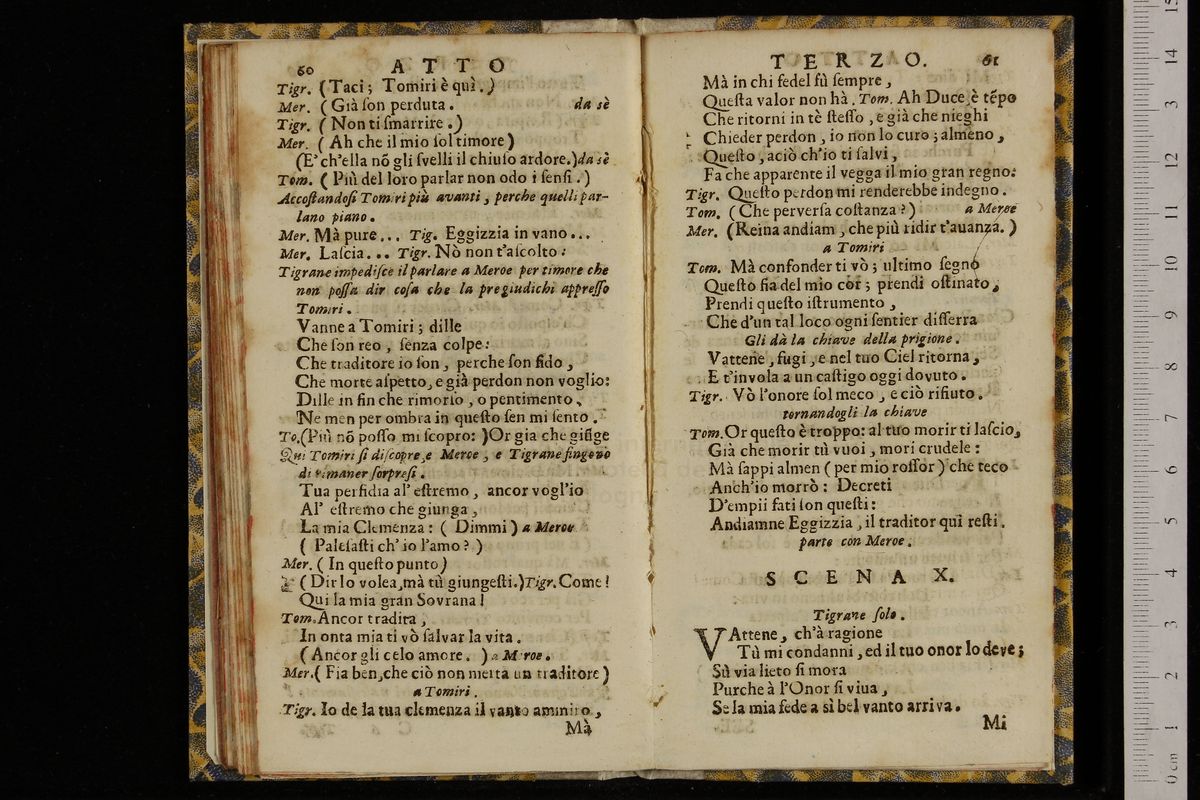 60 ATTO
Tigr. (Taci; Tomiri è quì.)
Mer. (Già ſon perduta. da sè
Tigr. (Non ti ſmarrire.)
Mer. (Ah che il mio ſol timore)
(E' ch'ella nõ gli ſvelli il chiuſo ardore.)da sè
Tom. (Più del loro parlar non odo i ſenſi.)
Accoſtandoſi Tomiri più avanti, perche quelli par-
lano piano.
Mer. Mà pure... Tig. Eggizzia in vano...
Mer. Laſcia... Tigr. Nò non t'aſcolto:
Tigrane impediſce il parlare a Meroe per timore che
non poſſa dir coſa che la pregiudichi appreſſo
Tomiri.
Vanne a Tomiri; dille
Che ſon reo, ſenza colpe:
Che traditore io ſon, perche ſon fido,
Che morte aſpetto, e già perdon non voglio:
Dille in fin che rimorſo, o pentimento,
Ne men per ombra in queſto ſen mi ſento.
To.(Più nõ poſſo mi ſcopro: )Or gia che giũge
Qui Tomiri ſi diſcopre,e Meroe, e Tigrane fingono
di rimaner ſorpreſi.
Tua perfidia al' eſtremo, ancor vogl'io
Al' eſtremo che giunga,
La mia Clemenza: (Dimmi) a Meroe
(Paleſaſti ch' io l'amo?)
Mer. (In queſto punto)
(Dirlo volea,mà tù giungeſti.)Tigr.Come!
Qui la mia gran Sovrana!
Tom.Ancor tradita,
In onta mia ti vò ſalvar la vita.
(Ancor gli celo amore. ) a Meroe.
Mer.( Fia ben,che ciò non merta un traditore)
a Tomiri.
Tigr. Io de la tua clemenza il vanto ammiro,
Mà
TERZO. 61
Mà in chi fedel fù ſempre,
Queſta valor non hà. Tom. Ah Duce è tẽpo
Che ritorni in tè ſteſſo, e già che nieghi
Chieder perdon, io non lo curo; almeno,
Queſto, aciò ch'io ti ſalvi,
Fa che apparente il vegga il mio gran regno:
Tigr. Queſto perdon mi renderebbe indegno.
Tom. (Che perverſa coſtanza?) a Meroe
Mer. (Reina andiam, che più ridir t'auanza.)
a Tomiri
Tom. Mà confonder ti vò; ultimo ſegno
Queſto ſia del mio cor; prendi oſtinato,
Prendi queſto iſtrumento,
Che d'un tal loco ogni ſentier diſſerra
Gli dà la chiave della prigione.
Vattene, fugi, e nel tuo Ciel ritorna,
E t'invola a un caſtigo oggi dovuto.
Tigr. Vò l'onore ſol meco, e ciò rifiuto.
tornandogli la chiave
Tom.Or queſto è troppo: al tuo morir ti laſcio,
Già che morir tù vuoi, mori crudele:
Mà ſappi almen (per mio roſſor) che teco
Anch'io morrò: Decreti
D'empii fati ſon queſti:
Andiamne Eggizzia, il traditor quì reſti.
parte con Meroe.
SCENA X.
Tigrane ſolo.
VAttene, ch'à ragione
Tù mi condanni, ed il tuo onor lo deve;
Sù via lieto ſi mora
Purche à l'Onor ſi viua,
Se la mia fede a sì bel vanto arriva.
Mi